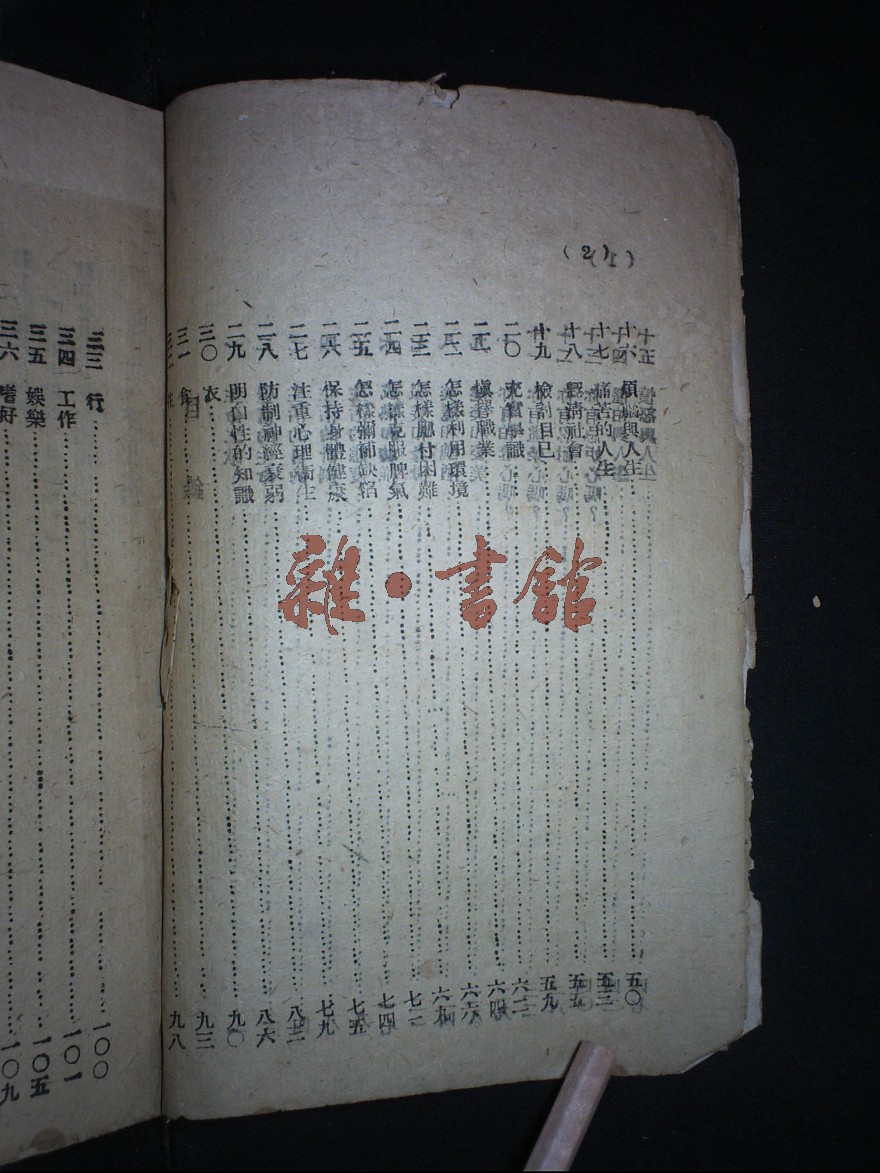 (2)
十六 煩惱與人生 五〇
十七 痛苦的人生 五三
十八 認清社會 五五
十九 檢討自己 五九
二〇 充實學識 六二
二一 慎替職業 六四
二二 怎樣利用環境 六六
二三 怎樣應付困難 六九
二四 怎樣克服脾氣 七二
二五 怎樣彌補缺陷 七四
二六 保持身體健康 七五
二七 注重心理衛生 七九
二八 防制神經衰弱 八三
二九 明白性的知識 八六
三〇 衣 九〇
三一 食 九三
三二 住 九八
三三 行 一〇〇
三四 工作 一〇一
三五 娛樂 一〇五
三六 嗜好 一〇九
雜·書館